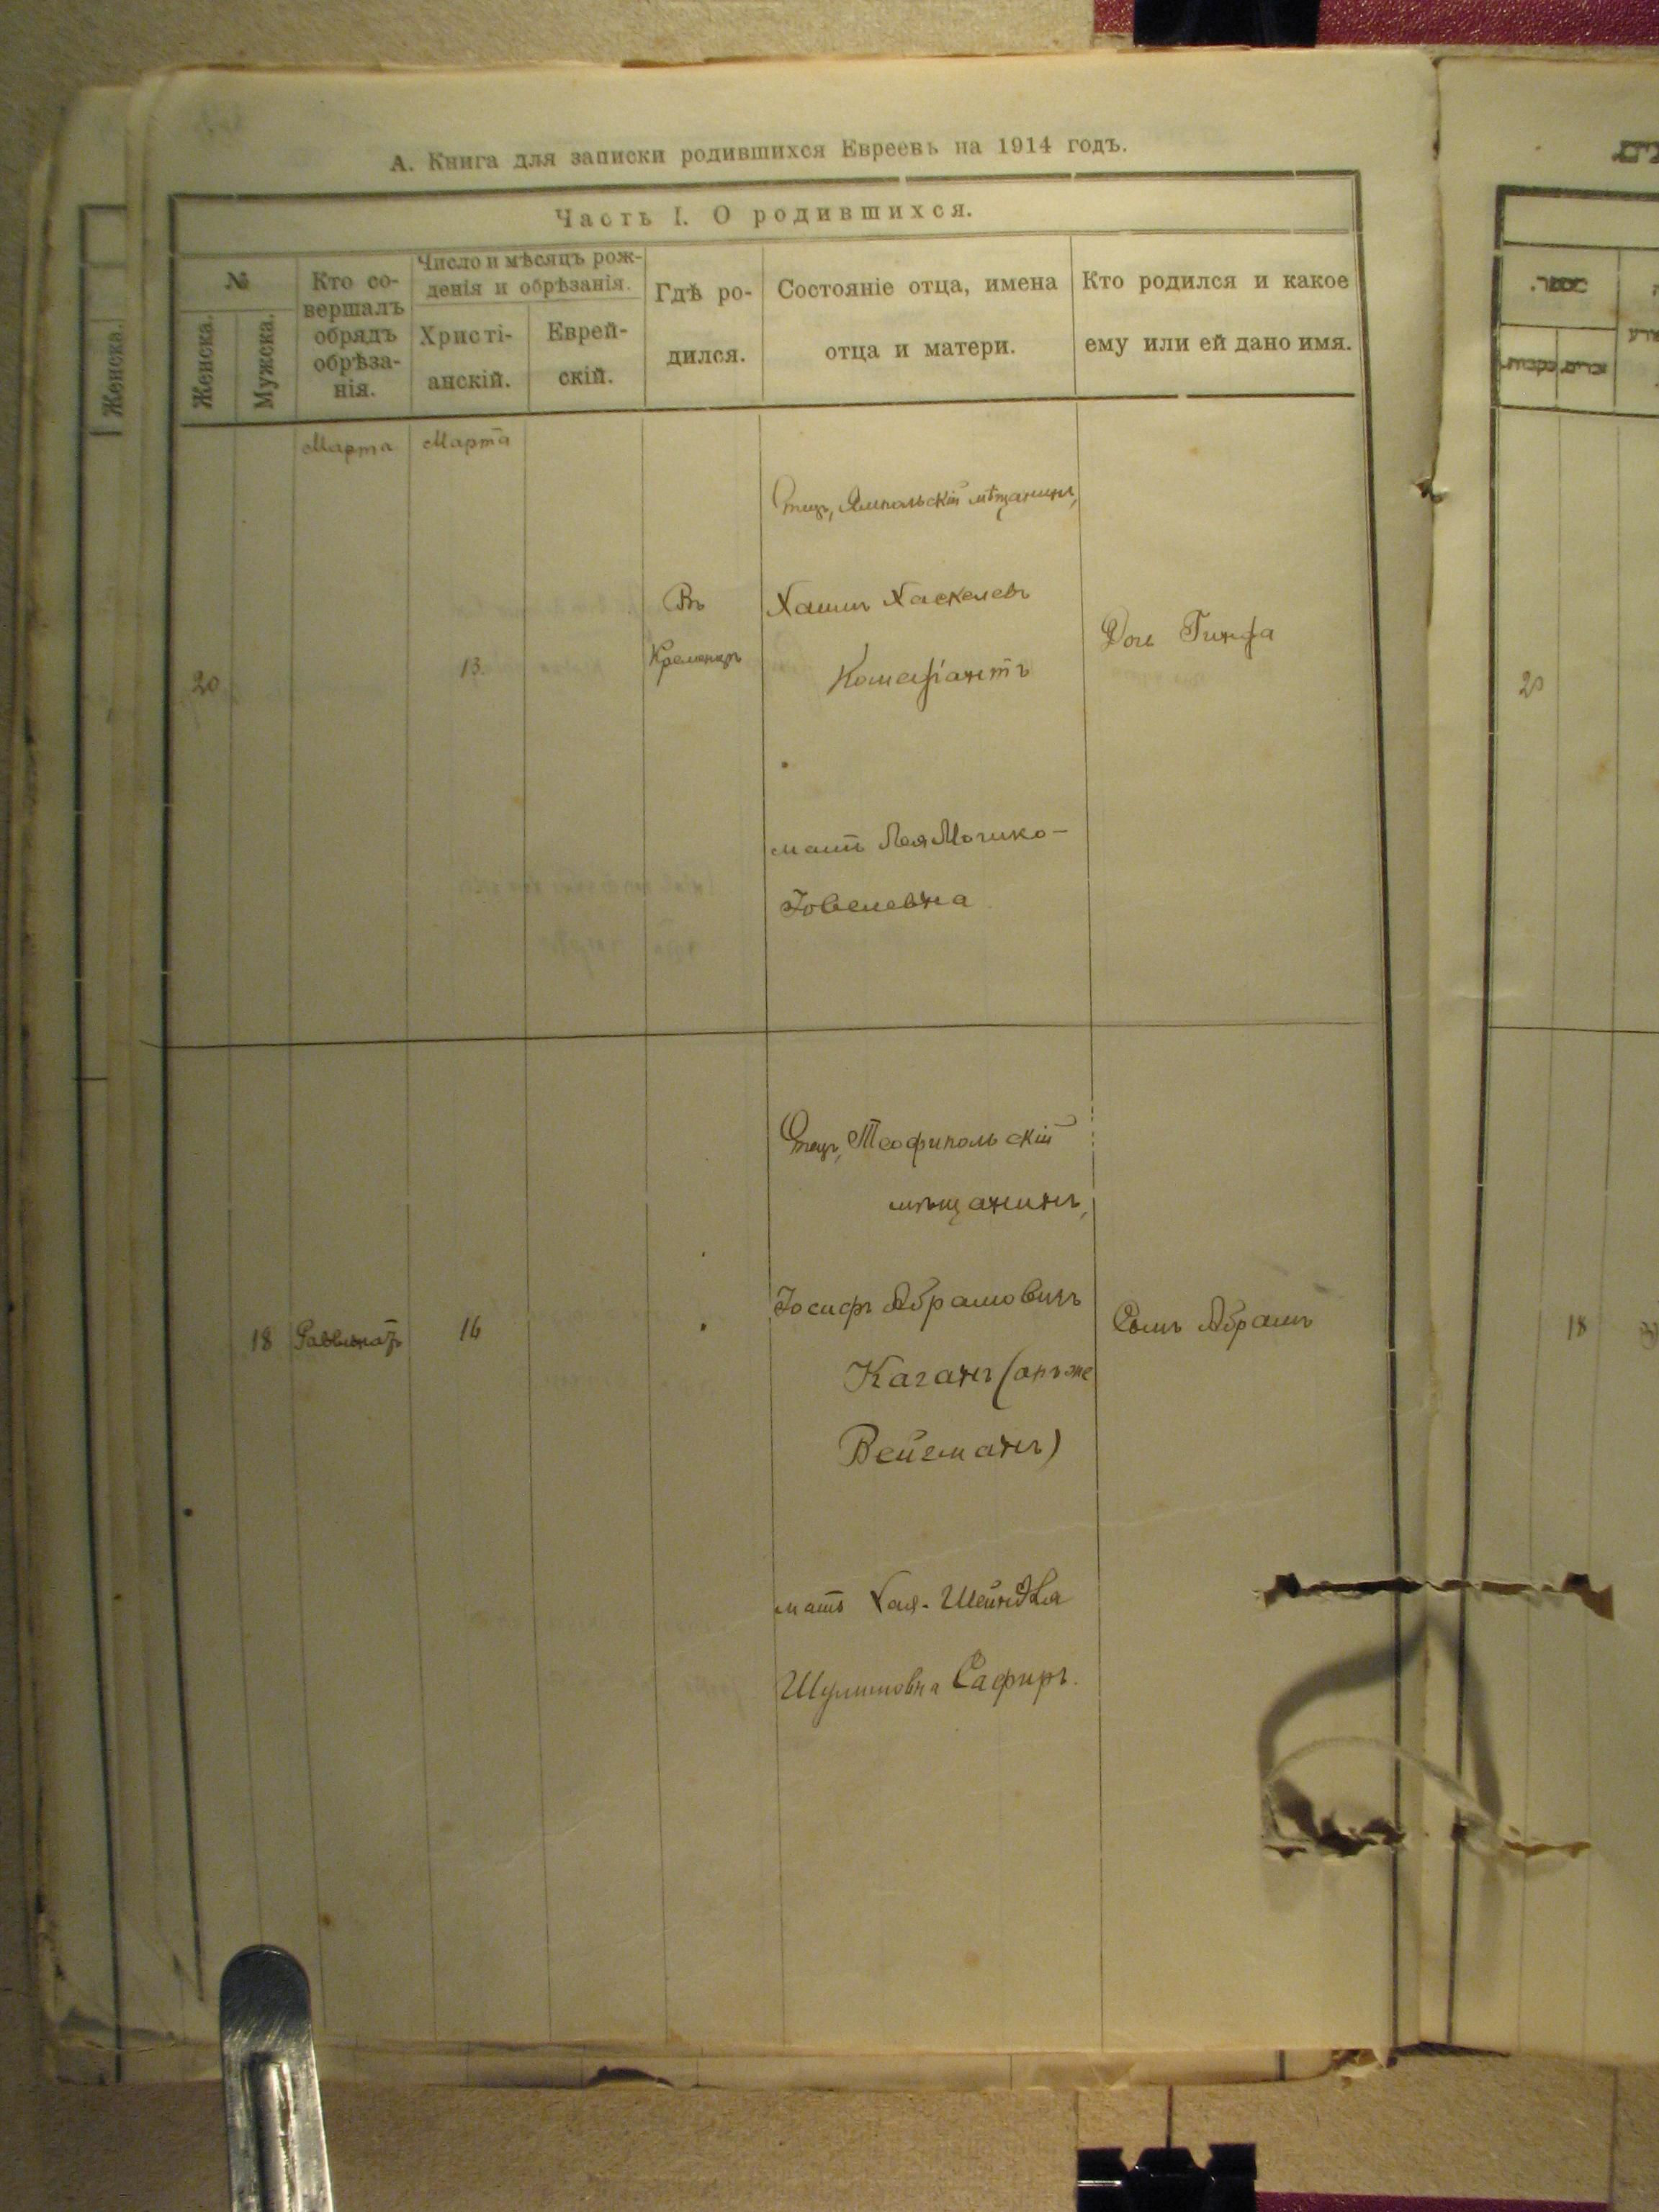 А. Книга для записки родившихся Евреевъ на 1914 годъ.
Часть I. О родившихся.
№
Женска.
Мужска.
Кто со-
вершалъ
обрядъ
обрѣза-
нія.
Число и мѣсяцъ рож-
денія и обрѣзанія.
Христі-
анскій.
Еврей-
скій.
Гдѣ ро-
дился.
Состояніе отца, имена
отца и матери.
Кто родился и какое
ему или ей дано имя.
Женска.
Марта
Марта
20
13
Въ
Кременцѣ
Отецъ, Ямпольскій мѣщанинъ,
Хаимъ Хаскелевъ
мать Лея Мошко-
Іовелевна
Дочь
20
18
16
Отецъ, Теофипольскій
мѣщанинъ,
Іосифъ Абрамовичъ
Каганъ (онъ же
Вейгманъ)
мать Хая-Шейндля
Шулимовна Сафиръ.
Сынъ Абрамъ
18